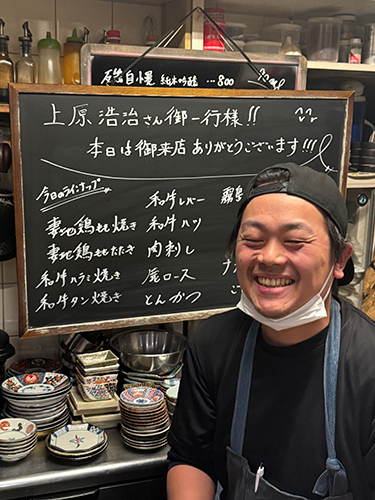 磯自慢 純米吟醸 …800
上原浩治さん御一行様!!
本日は御来店ありがとうございます!!!
今日のラインナップ
妻地鶏もも焼き
妻地鶏ももたたき
和牛ハラミ焼き
和牛タン焼き
和牛レバー
和牛ハツ
肉刺し
尾ロース
とんかつ
霧島